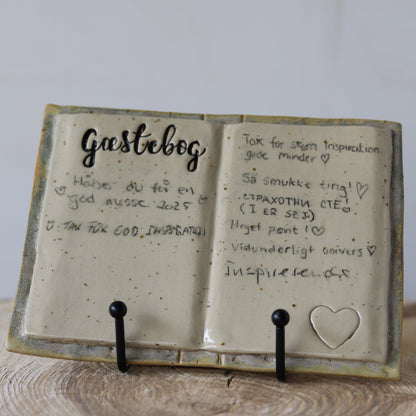 Gæstebog
Håber du får en
god messe 2025
TAK FOR GOD INSPIRATION
Tak for skøn inspiration
gode minder ♡
Så smukke ting! ♡
СТРАХОТНИ СТЕ!
(I ER SEJ)
Meget pænt! ♡
Vidunderligt univers ♡
Inspirerende